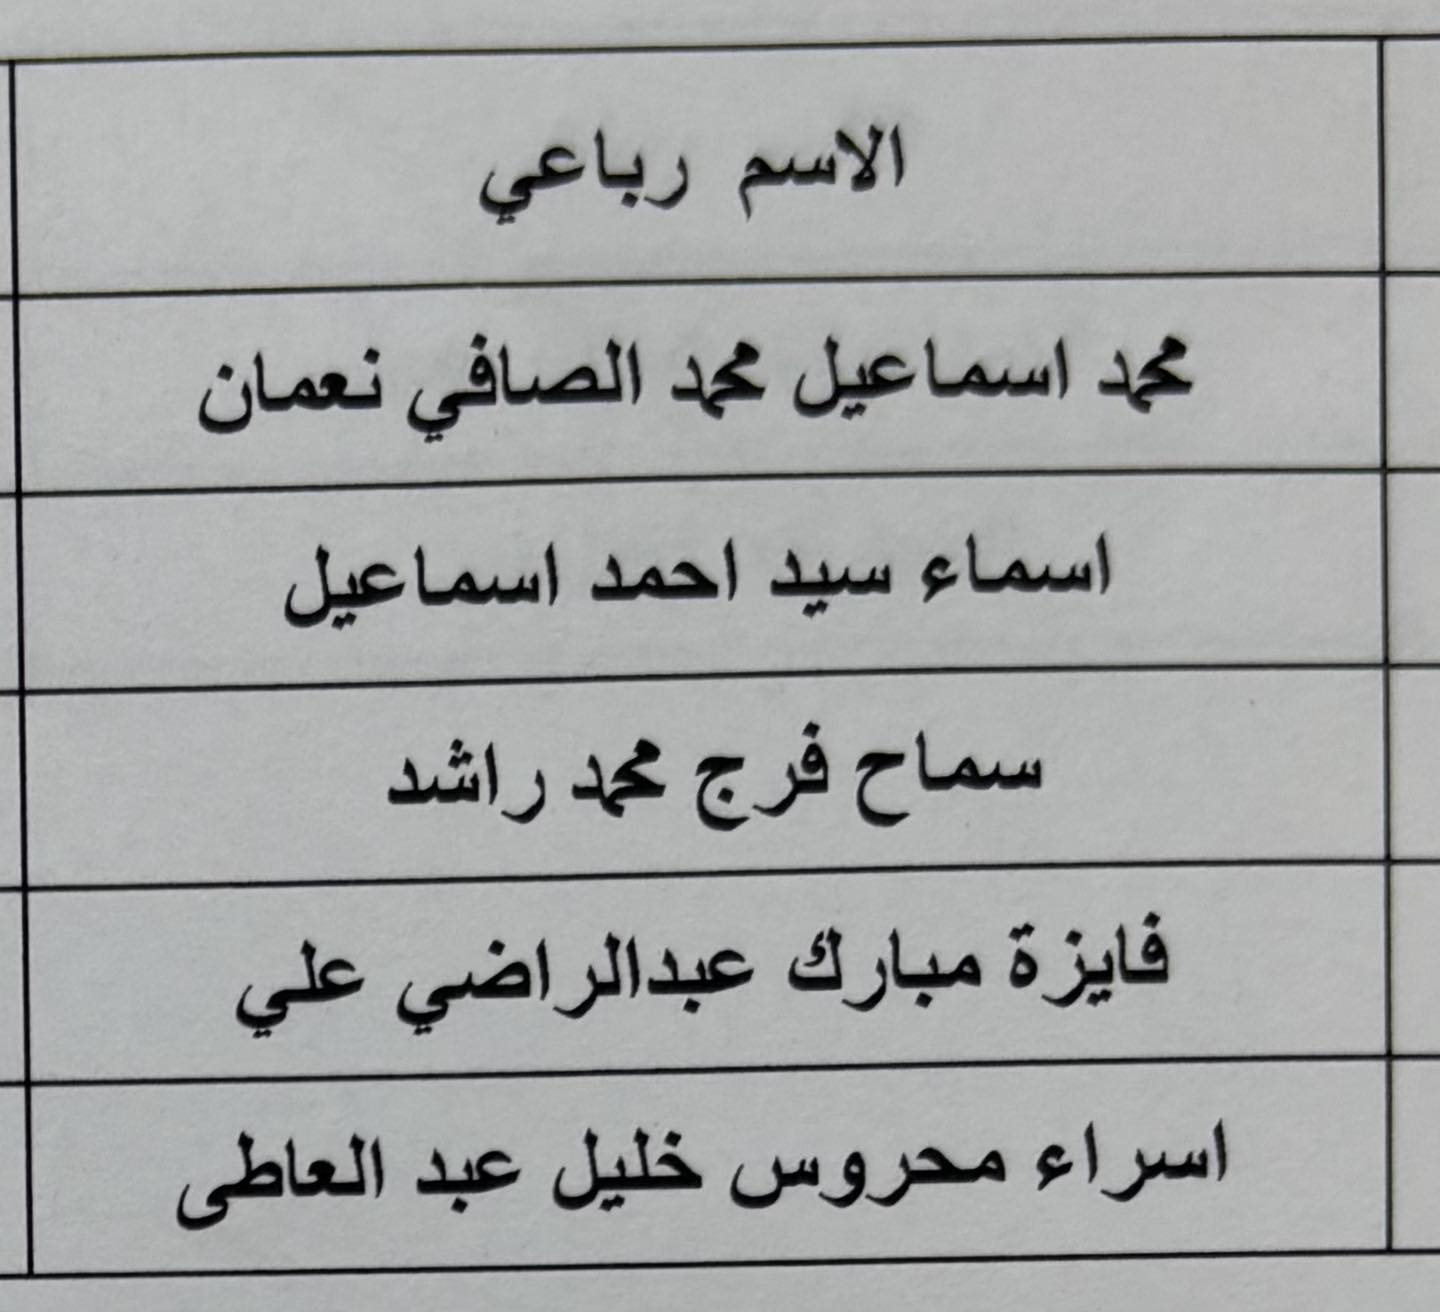 الاسم رباعي
محمد اسماعيل محمد الصافي نعمان
اسماء سيد احمد اسماعيل
سماح فرج محمد راشد
فايزة مبارك عبدالراضي علي
اسراء محروس خليل عبد العاطى